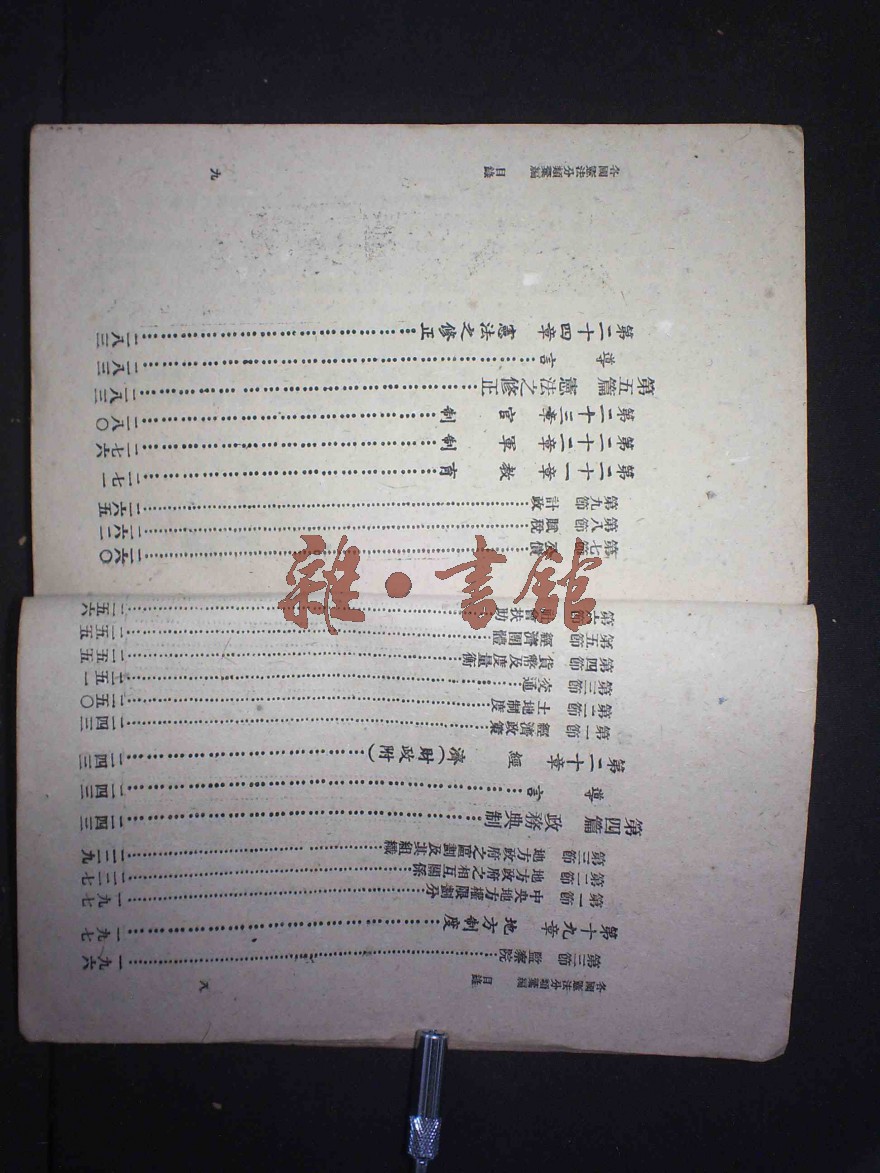 各國憲法分類彙編 目錄
八
第三節 監察院……一九六
第十九章 地方制度……一九七
第一節 中央地方權限劃分……一九七
第二節 地方政府之相互關係……二二七
第三節 地方政府之區劃及其組織……二二九
第四篇 政務典制……二四三
導言……二四三
第二十章 經濟(財政附)……二四三
第一節 經濟政策……二四三
第二節 土地制度……二五〇
第三節 交通……二五一
第四節 貨幣及度量衡……二五五
第五節 經濟團體……二五五
第六節 社會扶助……二五六
各國憲法分類彙編 目錄
九
第七節 債……二六〇
第八節 賦稅……二六二
第九節 計政……二六五
第二十一章 教育……二七一
第二十二章 軍制……二七六
第二十三章 官制……二八〇
第五篇 憲法之修正……二八三
導言……二八三
第二十四章 憲法之修正……二八三
雜·書館